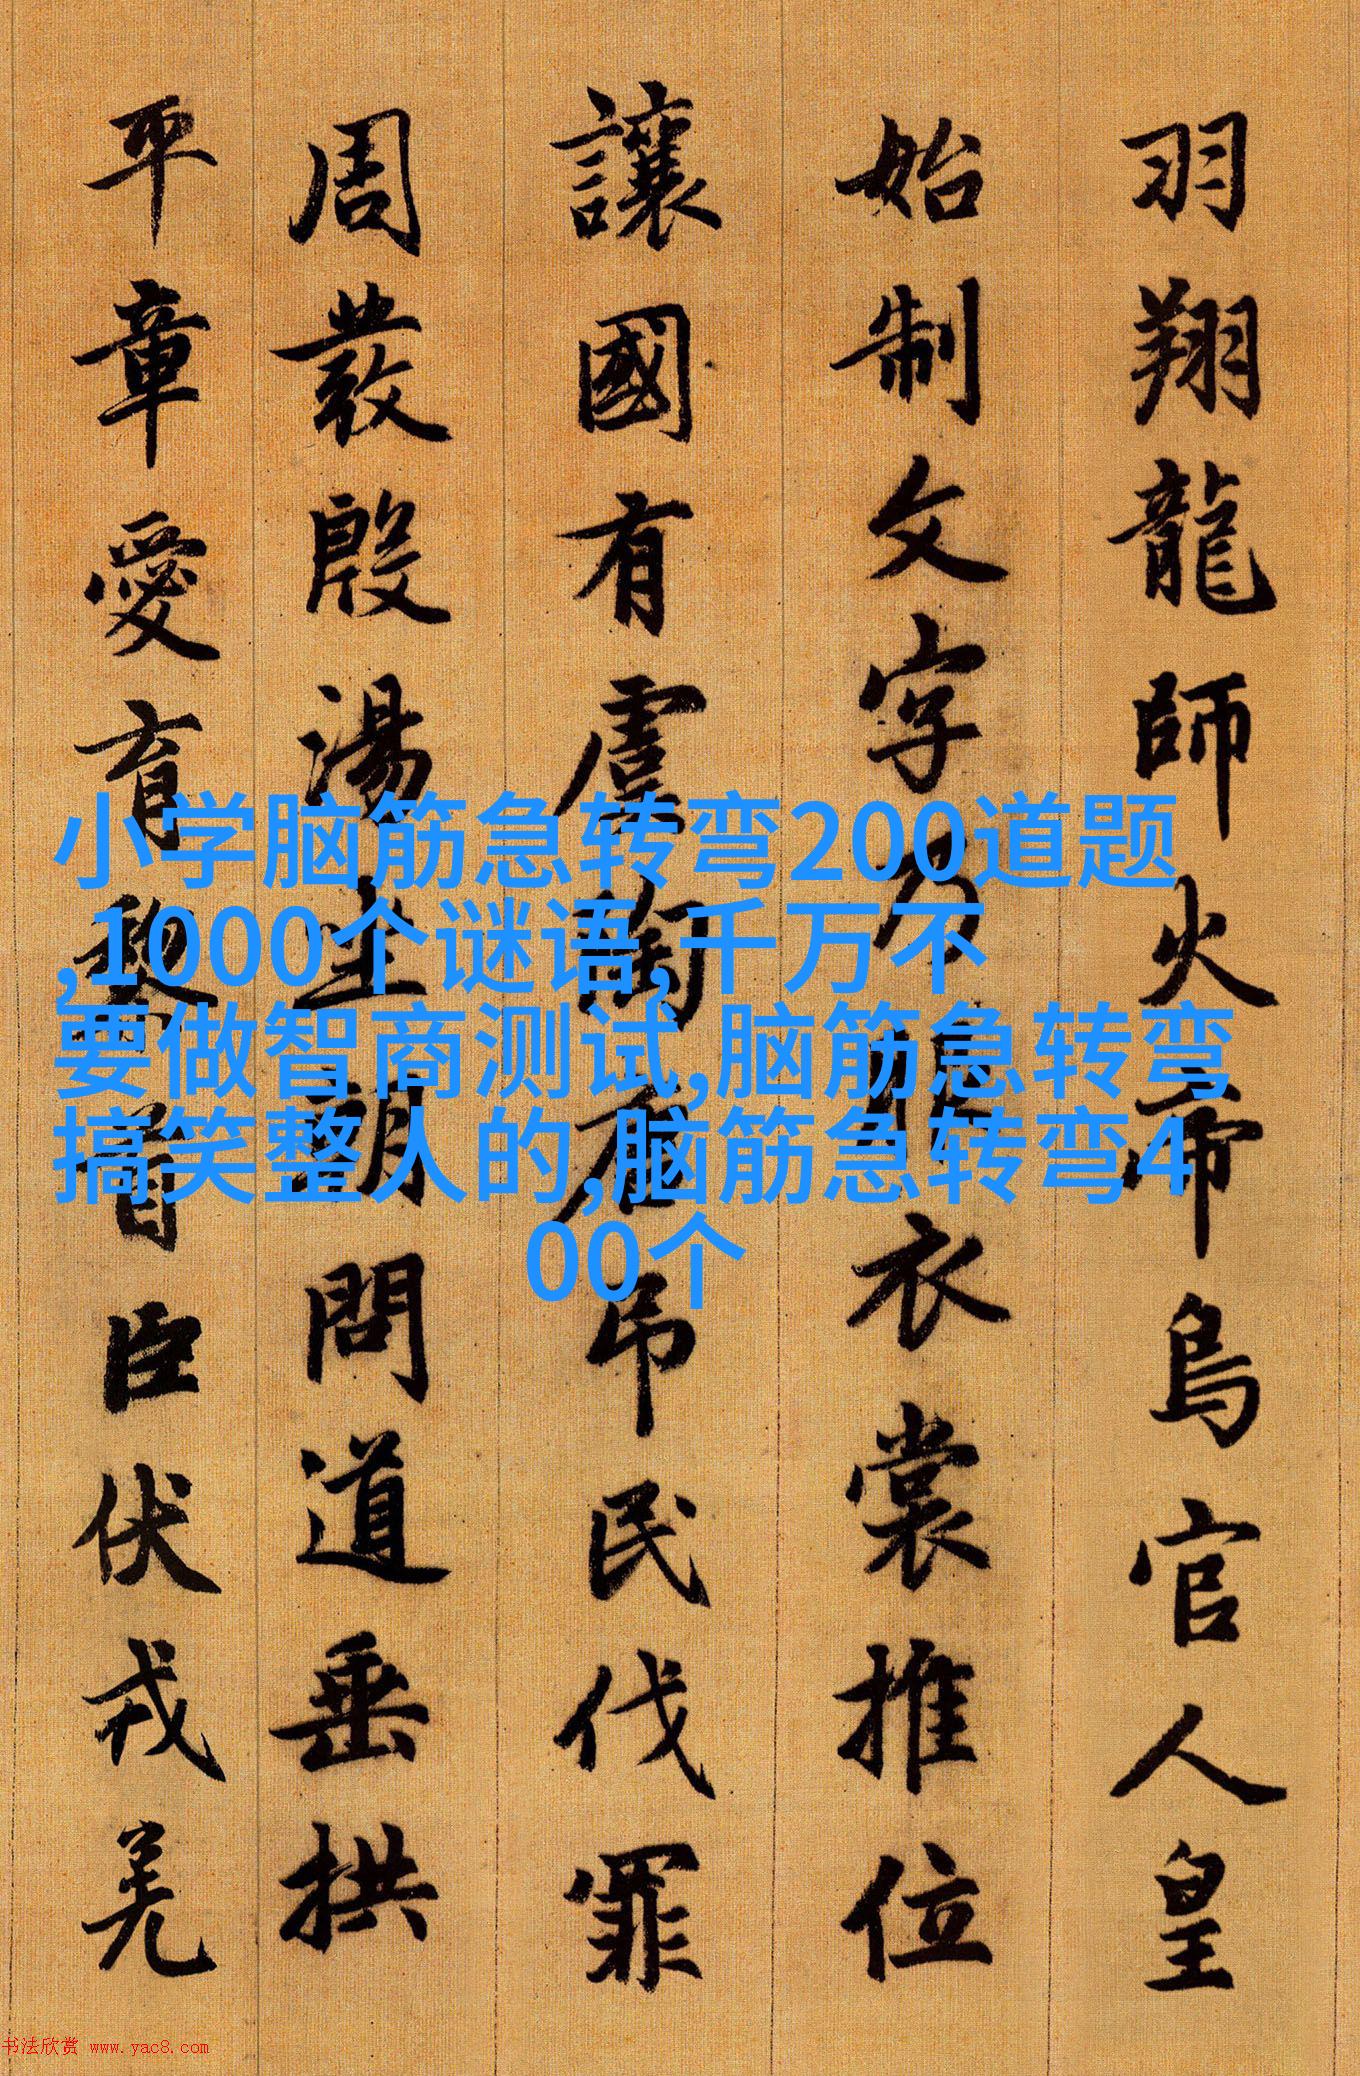 羽翔龍師火帝鳥官人皇
始制文字乃服衣裳推位
讓國有虞陶唐吊民伐罪
周發殷湯坐朝問道垂拱
平章愛育黎首臣伏戎羌
小学脑筋急转弯200道题
,1000个谜语,千万不
要做智商测试,脑筋急转弯
搞笑整人的,脑筋急转弯4
00个
书法欣赏 www.yac8.com